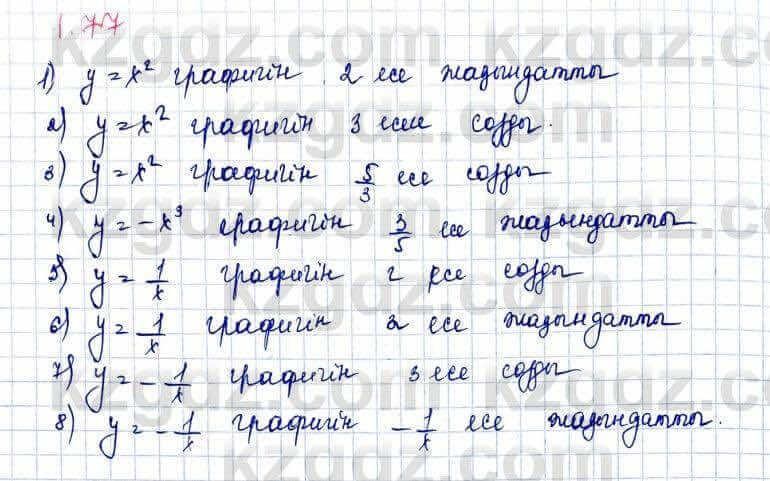 1.77
1) y = x² графигін 2 есе жазындатты
2) y = x² графигін 3 есе созды.
3) y = x² графигін 5/3 есе созды
4) y = -x³ графигін 3/5 есе жазындатты
5) y = 1/x графигін 2 есе созды
6) y = 1/x графигін 2 есе жазындатты
7) y = -1/x графигін 3 есе созды
8) y = -1/x графигін -1/x есе жазындатты.
kzgdz.com